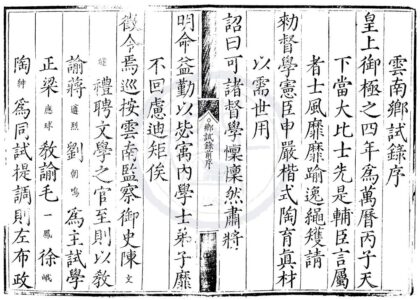 雲南鄉試錄序
皇上御極之四年為萬曆丙子天
下當大比士先是輔臣言屬
者士風靡靡踰逸繩矱請
勑督學憲臣申嚴楷式陶育眞材
以需世用
詔曰可諸督學懍懍然肅將
鄉試錄前序
一
明命益勤以故寓內學士弟子靡
不回慮迪矩俟
徵令焉巡按雲南監察御史陳文
燧禮聘文學之官至則以教
諭蔣遵烈劉朝鳴為主試學
正梁應球教諭毛一鳳徐岷
陶紳為同試提調則左布政